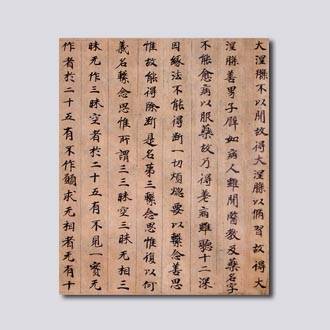 大涅槃不以聞故得大涅槃以脩習故得大
涅槃善男子辟如病人雖聞醫教及藥名字
不能愈病以服藥故乃得差病雖聽十二深
因緣法不能得斷一切煩惱要以繫念善思
惟故能得除斷是名第三繫念思惟復以何
義名繫念思惟所謂三三昧空三昧无相三
昧无作三昧空者於二十五有不見一實无
作者於二十五有不作願求无相者无有十